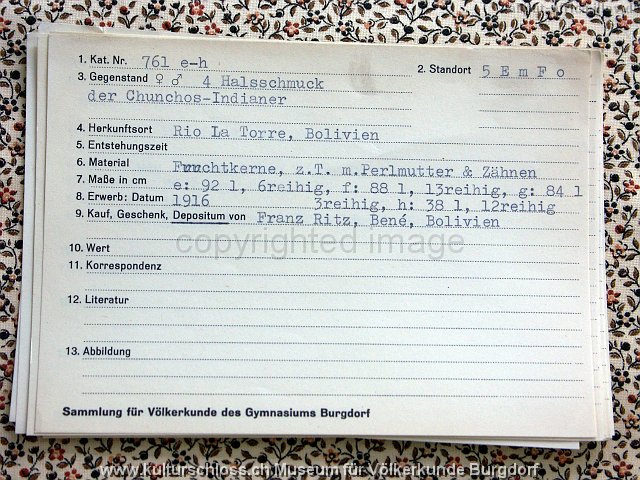 1. Kat. Nr. 761 e-h 2. Standort 5 E m F o
3. Gegenstand ♀ ♂ 4 Halsschmuck
der Chunchos-Indianer
4. Herkunftsort Rio La Torre, Bolivien
5. Entstehungszeit
6. Material Fruchtkerne, z.T. m.Perlmutter & Zähnen
7. Maße in cm e: 92 l, 6reihig, f: 88 l, 13reihig, g: 84 l
8. Erwerb: Datum 1916 3reihig, h: 38 l, 12reihig
9. Kauf, Geschenk, Depositum von Franz Ritz, Bené, Bolivien
copyrighted image
10. Wert
11. Korrespondenz
12. Literatur
13. Abbildung
Sammlung für Völkerkunde des Gymnasiums Burgdorf
www.kulturschloss.ch Museum für Völkerkunde Burgdorf